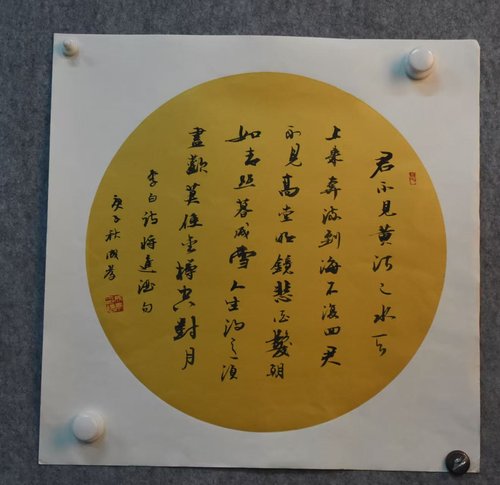 君不見黄河之水天
上來奔流到海不復回君
不見高堂明鏡悲白髮朝
如青絲暮成雪人生得意須
盡歡莫使金樽空對月
李白詩將進酒句
庚子秋成